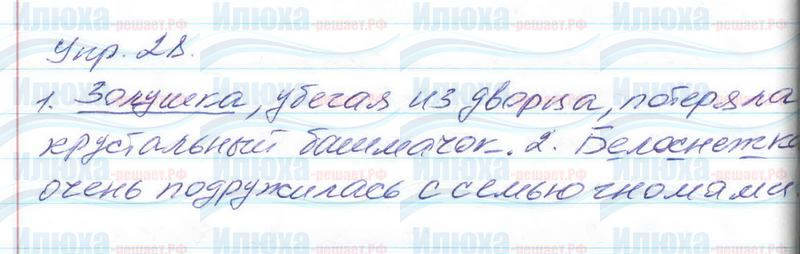 Упр. 28.
1. Золушка, убегая из дворца, потеряла
хрустальный башмачок. 2. Белоснежка
очень подружилась с семью гномами.